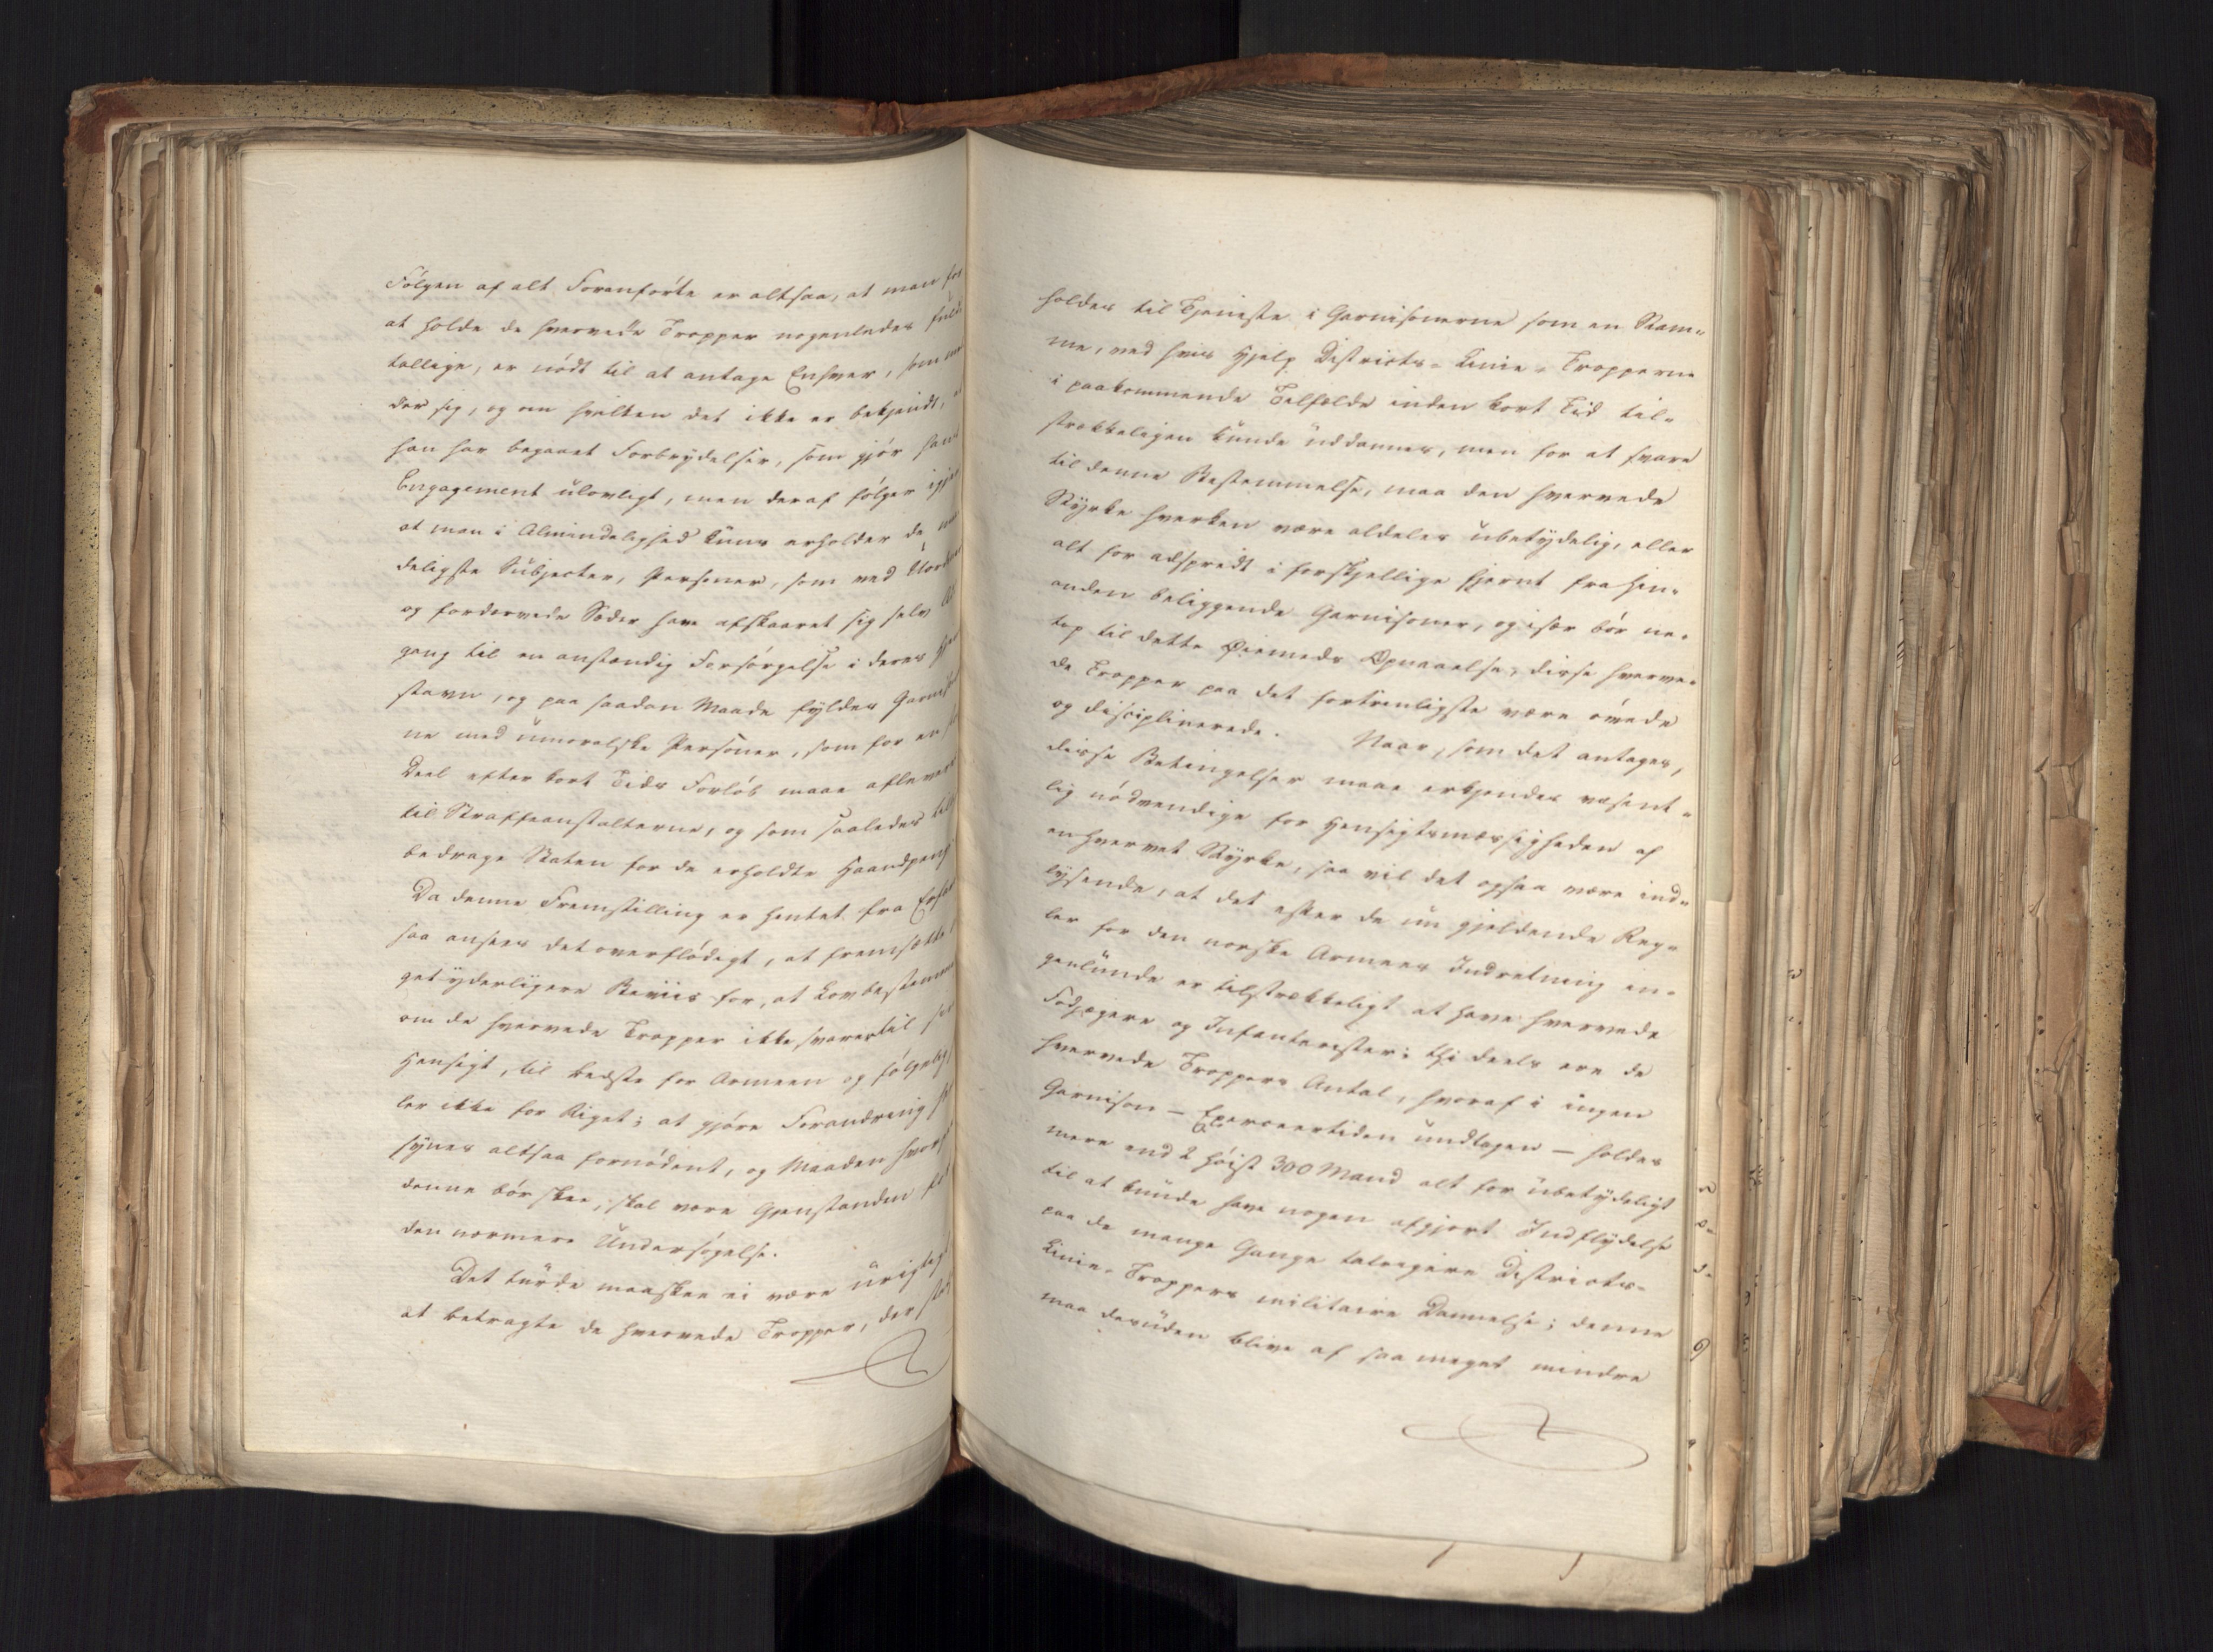 Følgen af alt Foranførte er altsaa, at man for
at holde de hvervede Tropper nogenledes fuld
tallige, er nødt til at antage Enhver, som
der sig, og om hvilken det ikke er bekjendt,
han har begaaet Forbrydelser, som gjør hans
Engagement ulovligt, men deraf følger igjen
at man i Almindelighed kuns erholder de
deligste Subjecter, Personer, som ved
og fordærvede Sæder have afskaaret sig selv
gang til en anstændig Forsørgelse i deres
stavn, og paa saadan Maade fyldes
ne med umoralske Personer, som for en
Deel efter kort Tids Forløb maae
til Straffeanstalterne, og som saaledes
bedrage Staten for de erholdte Haandpenge
Da denne Fremstilling er hentet fra
saa ansees det overflødigt, at fremsætte
get yderligere Beviis for, at Lovbestemm
om de hvervede Tropper ikke svarer til
Hensigt, til Bedste for Armeen og følgelig
ler ikke for Riget; at gjøre Forandring
synes altsaa fornødent, og Maaden
denne bør skee, skal være Gjenstanden
den nærmere Undersøgelse.
Det turde maaskee ei være urigtigt
at betragte de hvervede Tropper, der
holdes til Tjeneste i Garnisonerne som en Stam-
me, ved hvis Hjelp Districts-Linie-Tropperne
i paakommende Tilfælde inden kort Tid til-
strækkeligen kunde uddannes, men for at svare
til denne Bestemmelse, maa den hvervede
Styrke hverken være aldeles ubetydelig, eller
alt for adspredt i forskjellige fjernt fra hin-
anden beliggende Garnisoner, og især bør ne-
top til dette Øiemeds Opnaaelse, disse hverve-
de Tropper paa det fortrinligste være øvede
og disciplinerede. Naar, som det antages,
disse Betingelser maae erkjendes væsent-
lig nødvendige for Hensigtsmæssigheden af
en hvervet Styrke, saa vil det ogsaa være ind-
lysende, at det efter de nu gjeldende Reg-
ler for den norske Armees Indretning in-
genlunde er tilstrækkeligt at have hvervede
Fodjægere og Infanterister; thi deels ere de
hvervede Troppers Antal, hvoraf i ingen
Garnison – Exerceertiden undtagen – holdes
mere end 2 høist 300 Mand alt for ubetydeligt
til at kunde have nogen afgjort Indflydelse
paa de mange Gange talrigere Districts-
Linie-Troppers militaire Dannelse; denne
maa desuden blive af saa meget mindre